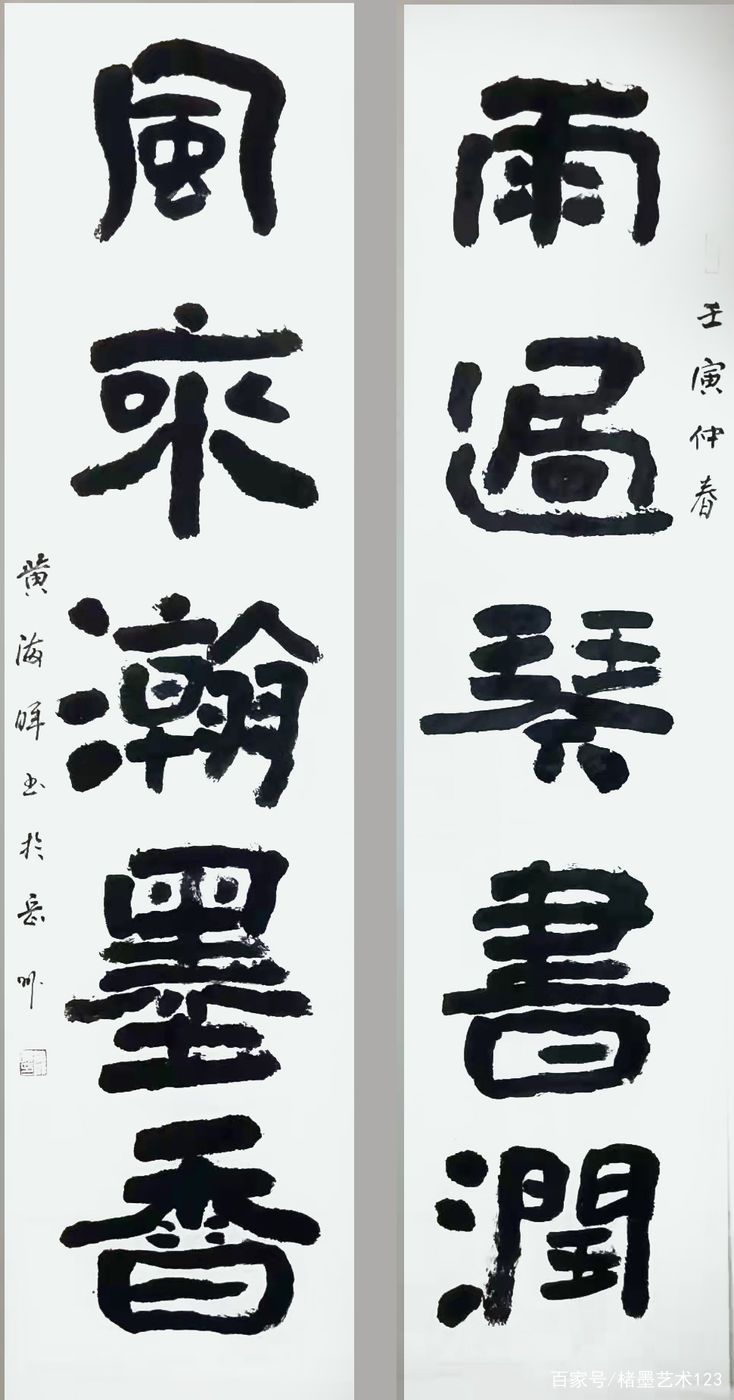 壬寅仲春
雨過琴書潤
風來瀚墨香
黄海晖书於岳州
百家号/楮墨艺术123